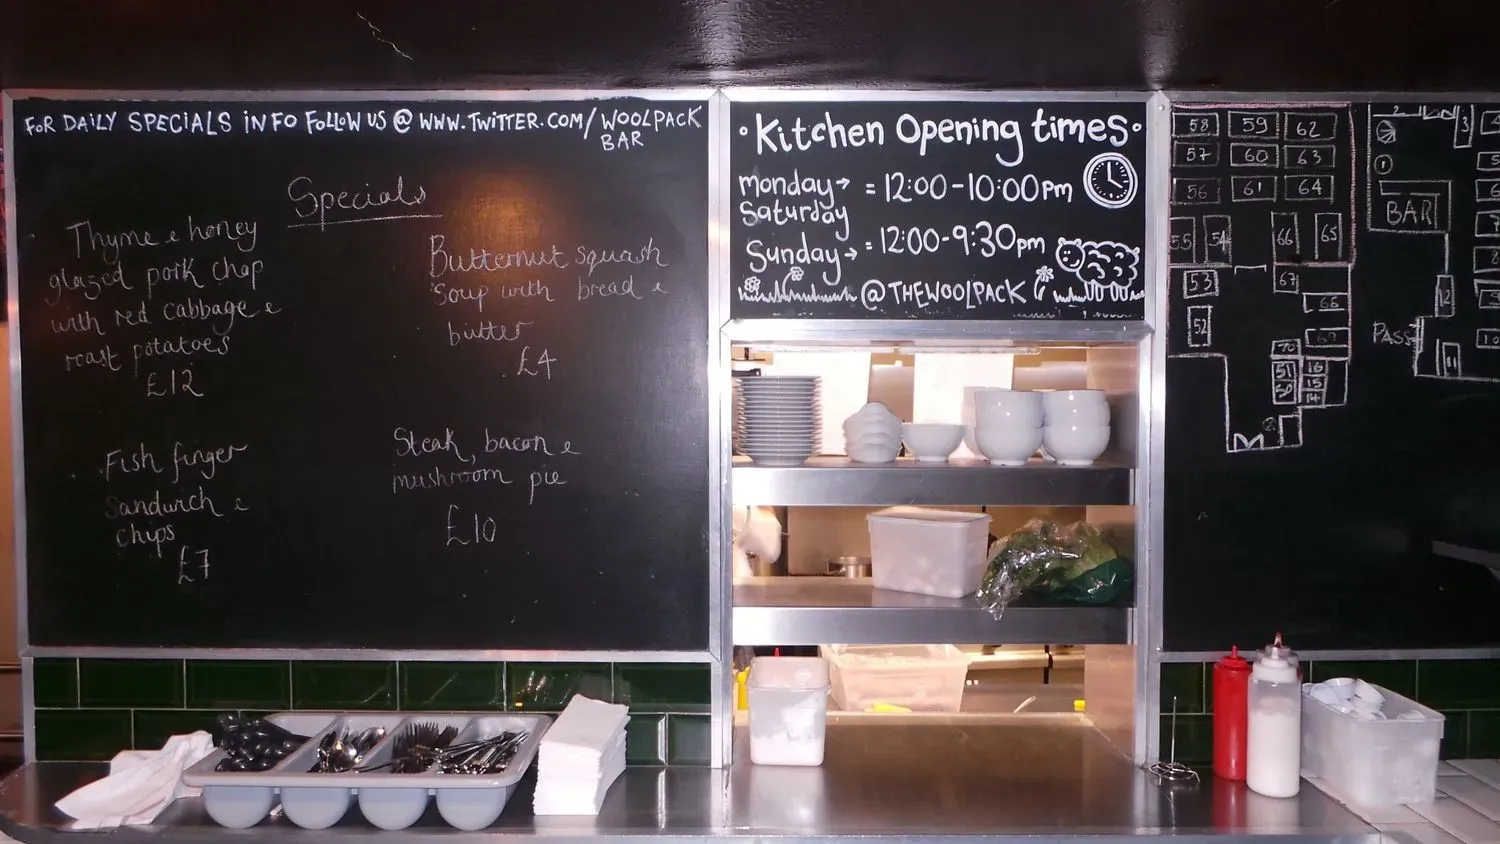 FOR DAILY SPECIALS INFO FOLLOW US @ WWW.TWITTER.COM/WOOLPACK
BAR
Specials
Thyme e honey
glazed pork chop
with red cabbage e
roast potatoes
£12
Butternut squash
soup with bread e
butter
£4
Fish finger
Sandwich e
chips
£7
Steak, bacon e
mushroom pie
£10
• Kitchen Opening times •
monday → = 12:00-10:00pm
Saturday
Sunday → = 12:00-9:30pm
@THEWOOLPACK
58 59 62
57 60 63
56 61 64
55 54 66 65
53 67
68
52 69
70
51 16
50 15
14
2
2 3
1
BAR
12
PASS
11